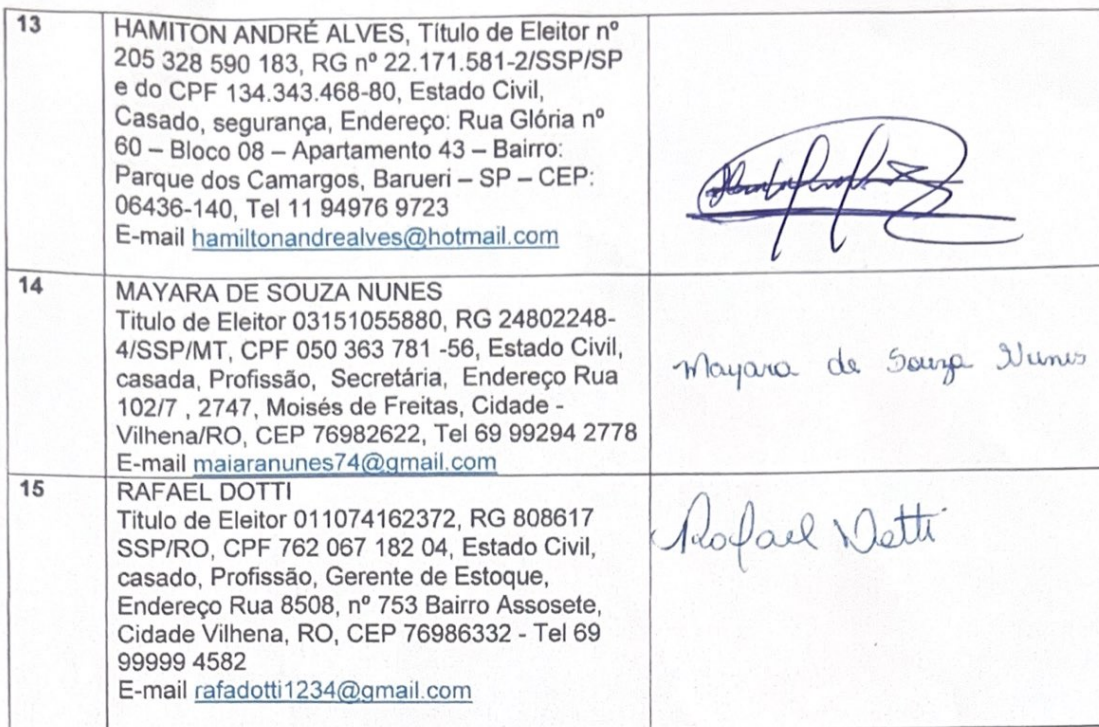 13
HAMITON ANDRÉ ALVES, Título de Eleitor nº
205 328 590 183, RG nº 22.171.581-2/SSP/SP
e do CPF 134.343.468-80, Estado Civil,
Casado, segurança, Endereço: Rua Glória nº
60 – Bloco 08 – Apartamento 43 – Bairro:
Parque dos Camargos, Barueri – SP – CEP:
06436-140, Tel 11 94976 9723
E-mail hamiltonandrealves@hotmail.com
14
MAYARA DE SOUZA NUNES
Titulo de Eleitor 03151055880, RG 24802248-
4/SSP/MT, CPF 050 363 781 -56, Estado Civil,
casada, Profissão, Secretária, Endereço Rua
102/7 , 2747, Moisés de Freitas, Cidade -
Vilhena/RO, CEP 76982622, Tel 69 99294 2778
E-mail maiaranunes74@gmail.com
Mayara de Souza Nunes
15
RAFAEL DOTTI
Titulo de Eleitor 011074162372, RG 808617
SSP/RO, CPF 762 067 182 04, Estado Civil,
casado, Profissão, Gerente de Estoque,
Endereço Rua 8508, nº 753 Bairro Assosete,
Cidade Vilhena, RO, CEP 76986332 - Tel 69
99999 4582
E-mail rafadotti1234@gmail.com
Rafael Dotti